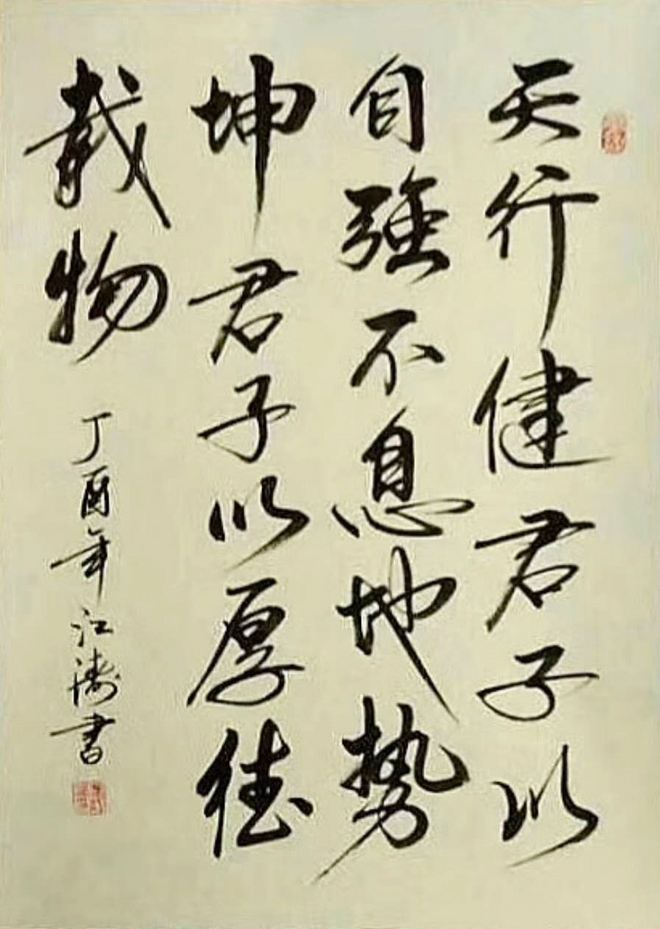 天行健君子以
自强不息地势
坤君子以厚德
载物
丁酉年江涛书